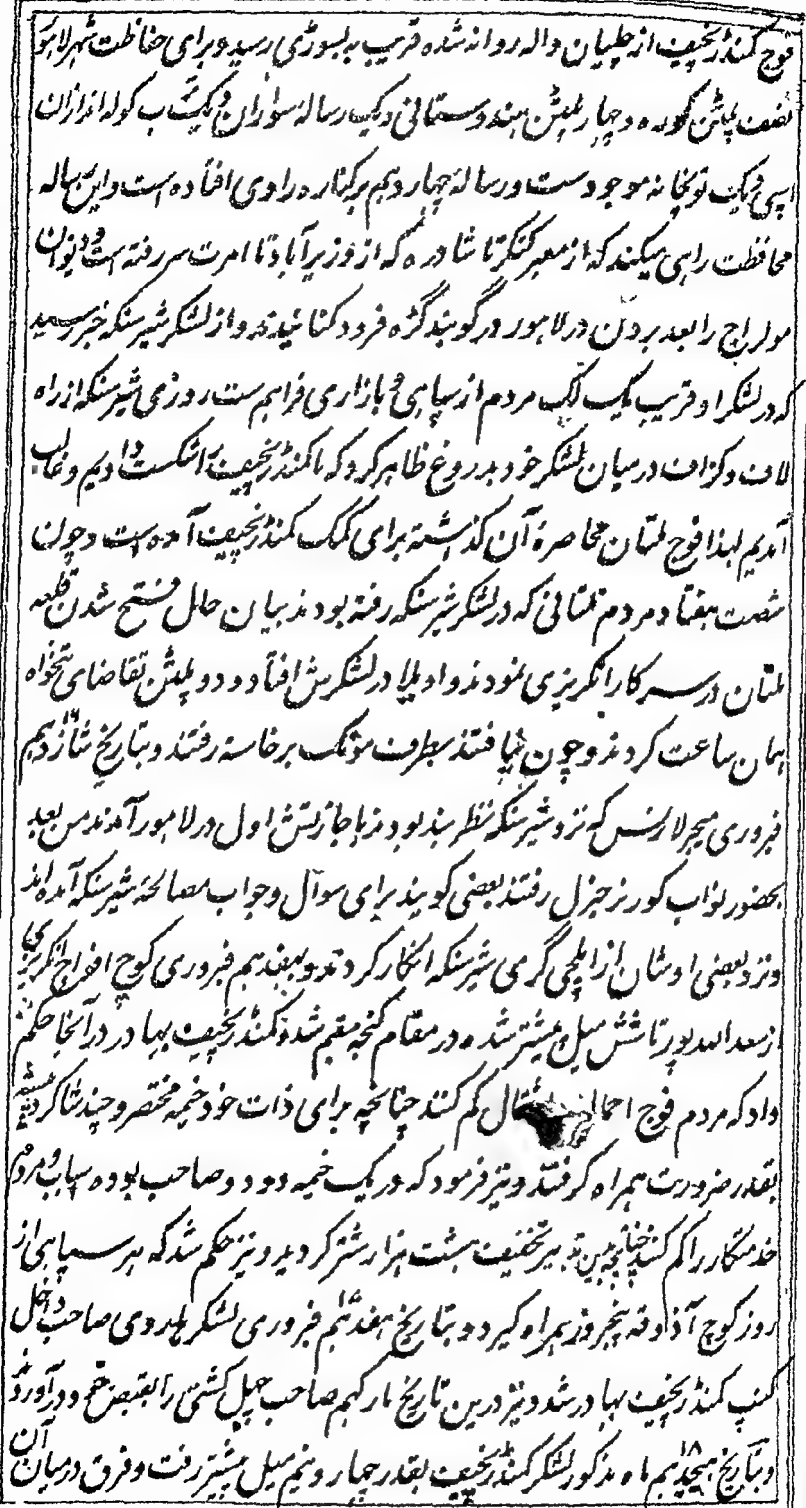 فوج کمندرنچیف از چلیان واله روانه شده قریب به لسوڑی رسید و برای حفاظت شهر لاهور
نصف پلیٹن گوره و چهار پلیٹن هندوستانی و یک رسالهٔ سواران و یک ٹپ کوله اندازان
اسپی و یک توپخانه موجودست و رسالهٔ چهاردهم بر کناره راوی افتاده است و این رساله
محافظت راهی میکند که از معبر کنکر تا شادره که از وزیرآباد تا امرت سر رفته است و دیوان
مولراج را بعد بردن در لاهور در گوبند گڑه فرود کنانیدند و از لشکر شیر سنکه خبر رسید
که در لشکر او قریب یک لک مردم از سپاهی و بازاری فراهم ست روزی شیر سنکه از راه
لاف و کزاف درمیان لشکر خود بدروغ ظاهر کرد که ما کمندرنچیف را شکست دادیم و غالب
آمدیم لهذا فوج ملتان محاصرهٔ آن کذاشته برای کمک کمندرنچیف آمده است و چون
شصت هفتاد مردم ملتانی که در لشکر شیر سنکه رفته بودند بیان حال فتح شدن قلعه
ملتان در سرکار انکریزی نمودند واویلا در لشکرش افتاد و دو پلیٹن تقاضای تنخواه
همان ساعت کردند و چون نیافتند بطرف مونک برخاسته رفتند و بتاریخ شانزدهم ۱۶
فبروری میجر لارنس که نزد شیر سنکه نظربند بودند باجازتش اول در لاهور آمدند من بعد
بحضور نواب کورنر جنرل رفتند بعضی کویند برای سوال و جواب مصالحهٔ شیر سنکه آمده اند
و نزد بعضی اوشان از ایلچی گری شیر سنکه انکار کردند و بهفدهم فبروری کوچ افواج انکریزی
از سعد الله پور تا شش میل پیشتر شده در مقام کنجه مقیم شد و کمندرنچیف بهادر در آنجا حکم
داد که مردم فوج احمال و اثقال کم کنند چنانچه برای ذات خود خیمه مختصر و چند شاکرد پیشه
بقدر ضرورت همراه کرفتند و نیز فرمود که در یک خیمه دو دو صاحب بوده اسباب و مردم
خدمتکار را کم کنند چنانچه بدین تدبیر تخفیف هشت هزار شتر کردید و نیز حکم شد که هر سپاهی از
روز کوچ آذوقه پنجروز همراه گیرد و بتاریخ هفدهم ۱۷ فبروری لشکر صاحب داخل
کنپ کمندرنچیف بهادر شد و نیز درین تاریخ مارکهم صاحب چهل کشتی را بقبض خود درآوردند
و بتاریخ هیجدهم ۱۸ ماه مذکور لشکر کمندرنچیف بقدر چهار و نیم میل پیشتر رفت و فرق درمیان آن